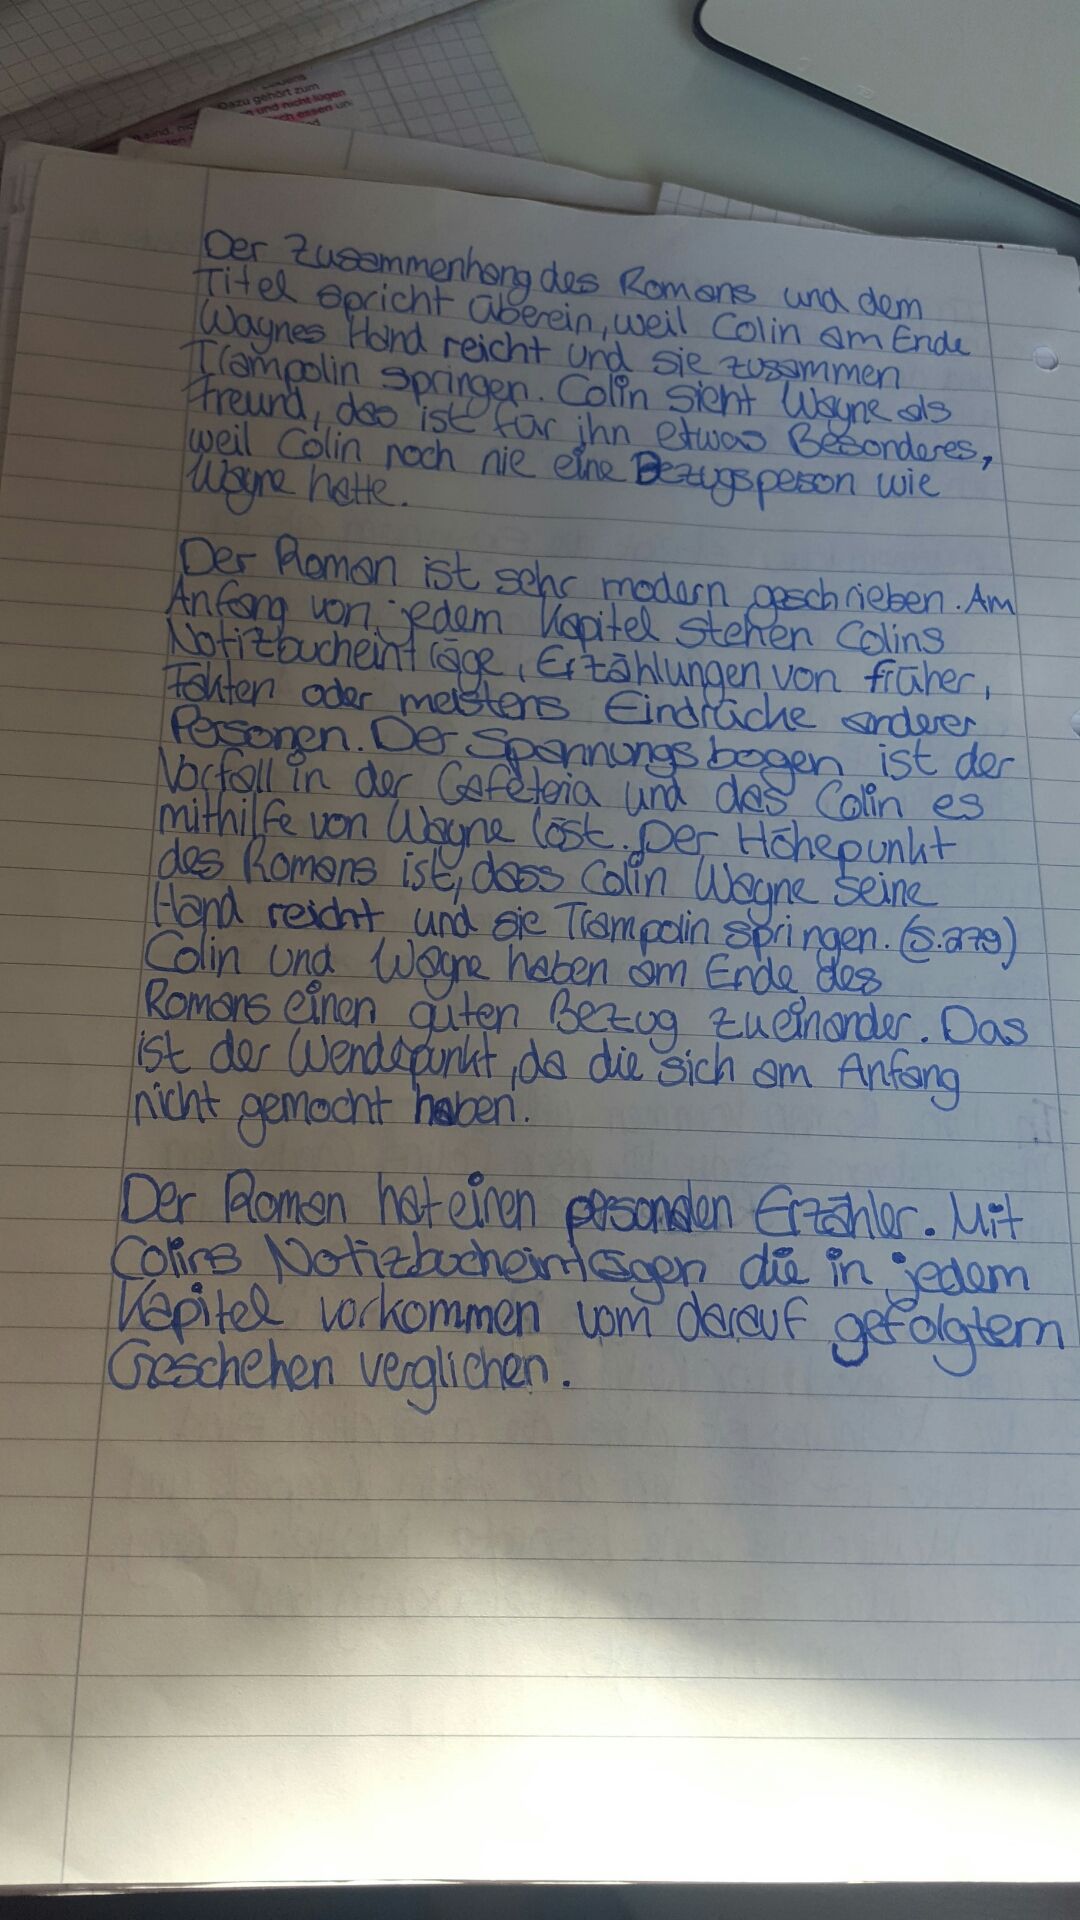 Dazu gehört zum
und nicht lügen
Der Zusammenhang des Romans und dem
Titel spricht überein, weil Colin am Ende
Waynes Hand reicht und sie zusammen
Trampolin springen. Colin sieht Wayne als
Freund, das ist für ihn etwas Besonderes,
weil Colin noch nie eine Bezugsperson wie
Wayne hatte.
Der Roman ist sehr modern geschrieben. Am
Anfang von jedem Kapitel stehen Colins
Notizbucheinträge, Erzählungen von früher,
Fakten oder meistens Eindrücke anderer
Personen. Der Spannungsbogen ist der
Vorfall in der Cefeteria und das Colin es
mithilfe von Wayne löst. Der Höhepunkt
des Romans ist, dass Colin Wayne seine
Hand reicht und sie Trampolin springen. (S.279)
Colin und Wayne haben am Ende des
Romans einen guten Bezug zueinander. Das
ist der Wendepunkt, da die sich am Anfang
nicht gemocht haben.
Der Roman hat einen personalen Erzähler. Mit
Colins Notizbucheinträgen die in jedem
Kapitel vorkommen vom darauf gefolgtem
Geschehen verglichen.